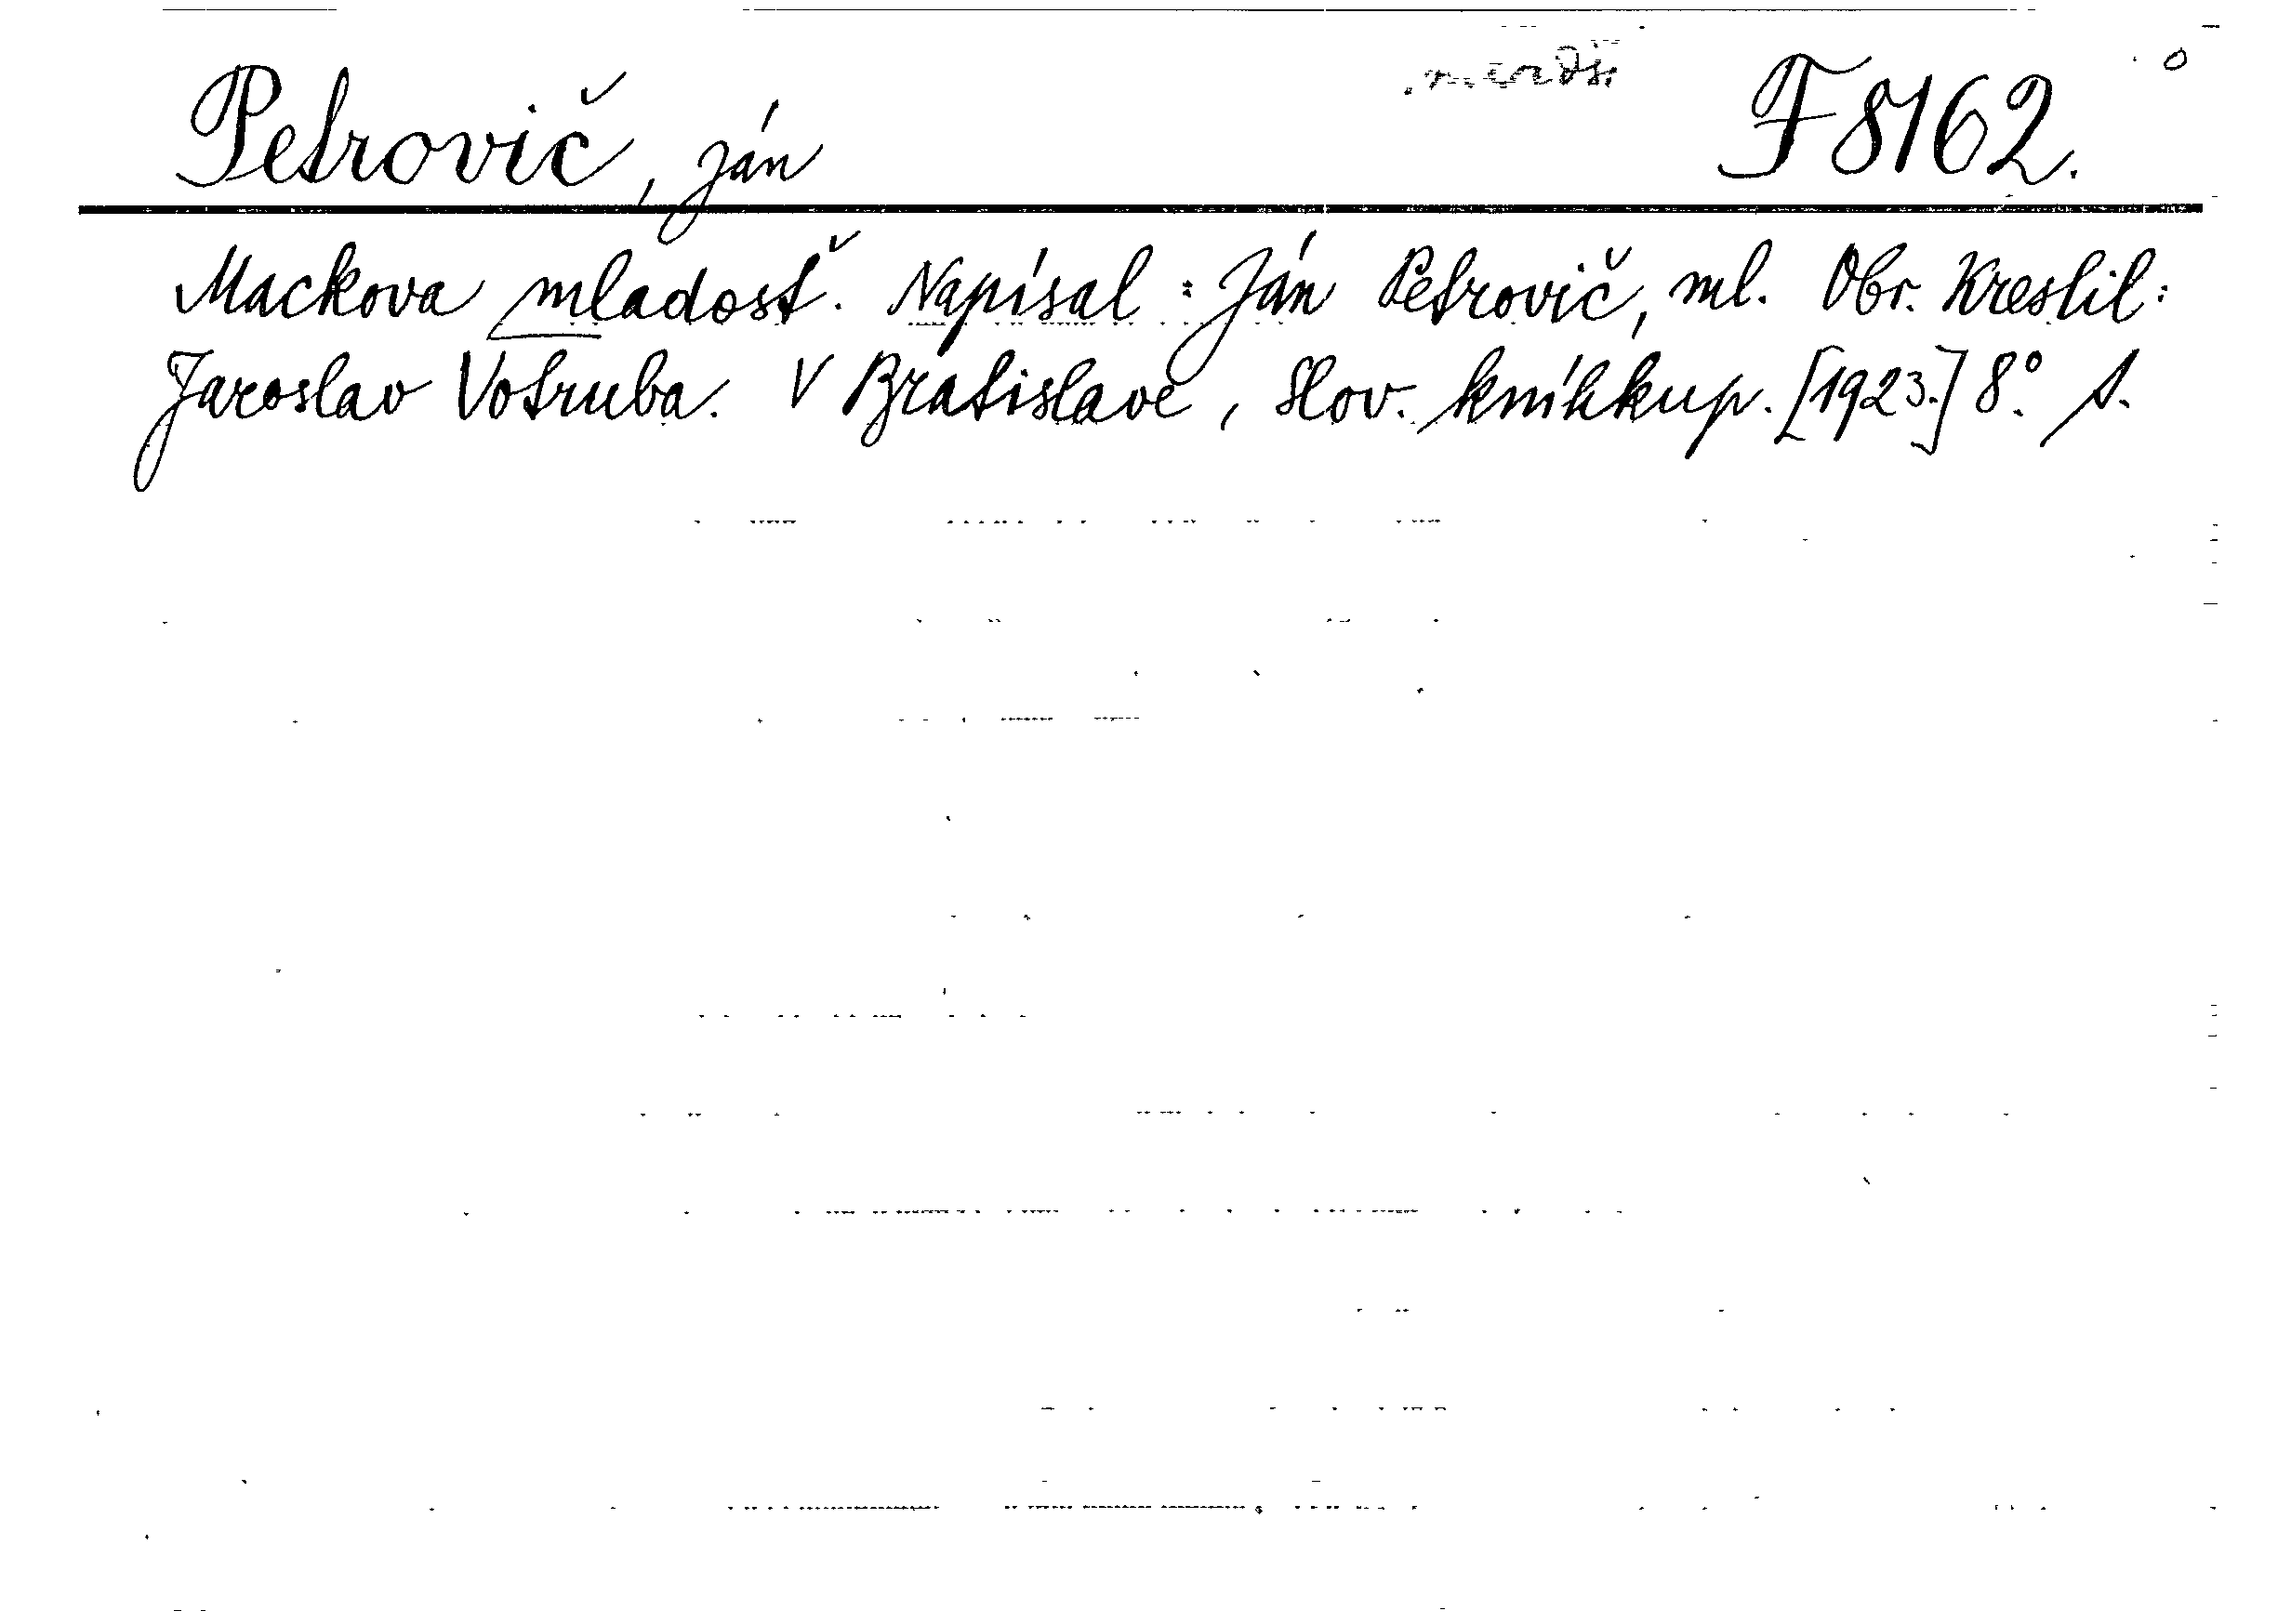 Petrovič, Ján F 8162.
Mackova mladosť. Napísal: Ján Petrovič, ml. Obr. Kreslil:
Jaroslav Votruba. V Bratislave, Slov. kníhkup. [1923.] 8°. s.